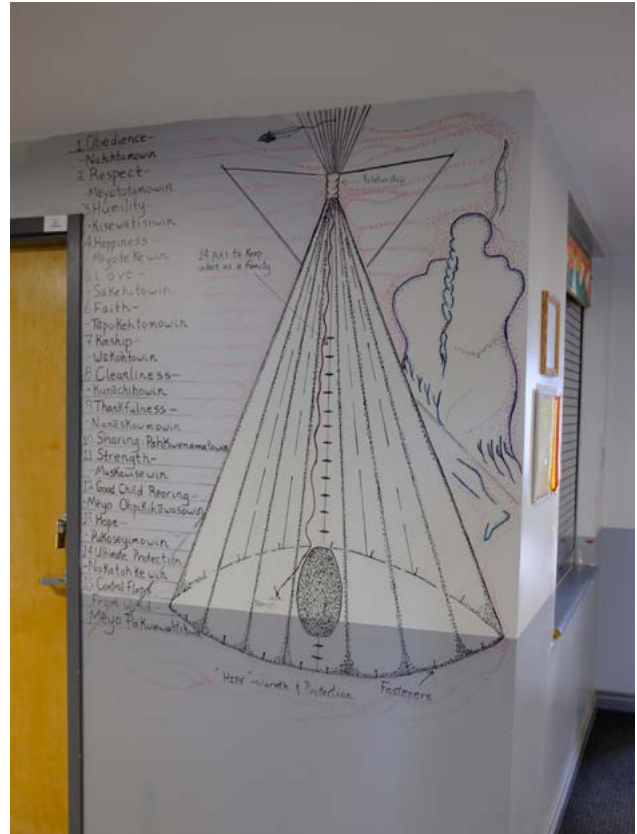 1 Obedience-
-Nahihtamowin
2 Respect-
-Meyototamowin
3 Humility-
-Kisewatisiwin
4 Happiness-
-Meyotekewin
5 Love-
-Sakehitowin
6 Faith-
-Tapokehtamowin
7 Kinship-
-Wakohtowin
8 Cleanliness-
-Kunachihowin
9 Thankfulness-
-Nanaskowmowin
10 Sharing Pahkwenamatowin
11 Strength-
-Muskawisewin
12 Good Child Rearing-
-Meyo Ohpikihawasowin
13 Hope-
-Pakoseyimowin
14 Ultimate Protection
-Nakatohkewin
15 Control Flaps
From Wind-
Relationship
14 pins to keep
intact as a family
"Hide" warmth & Protection
Fasteners